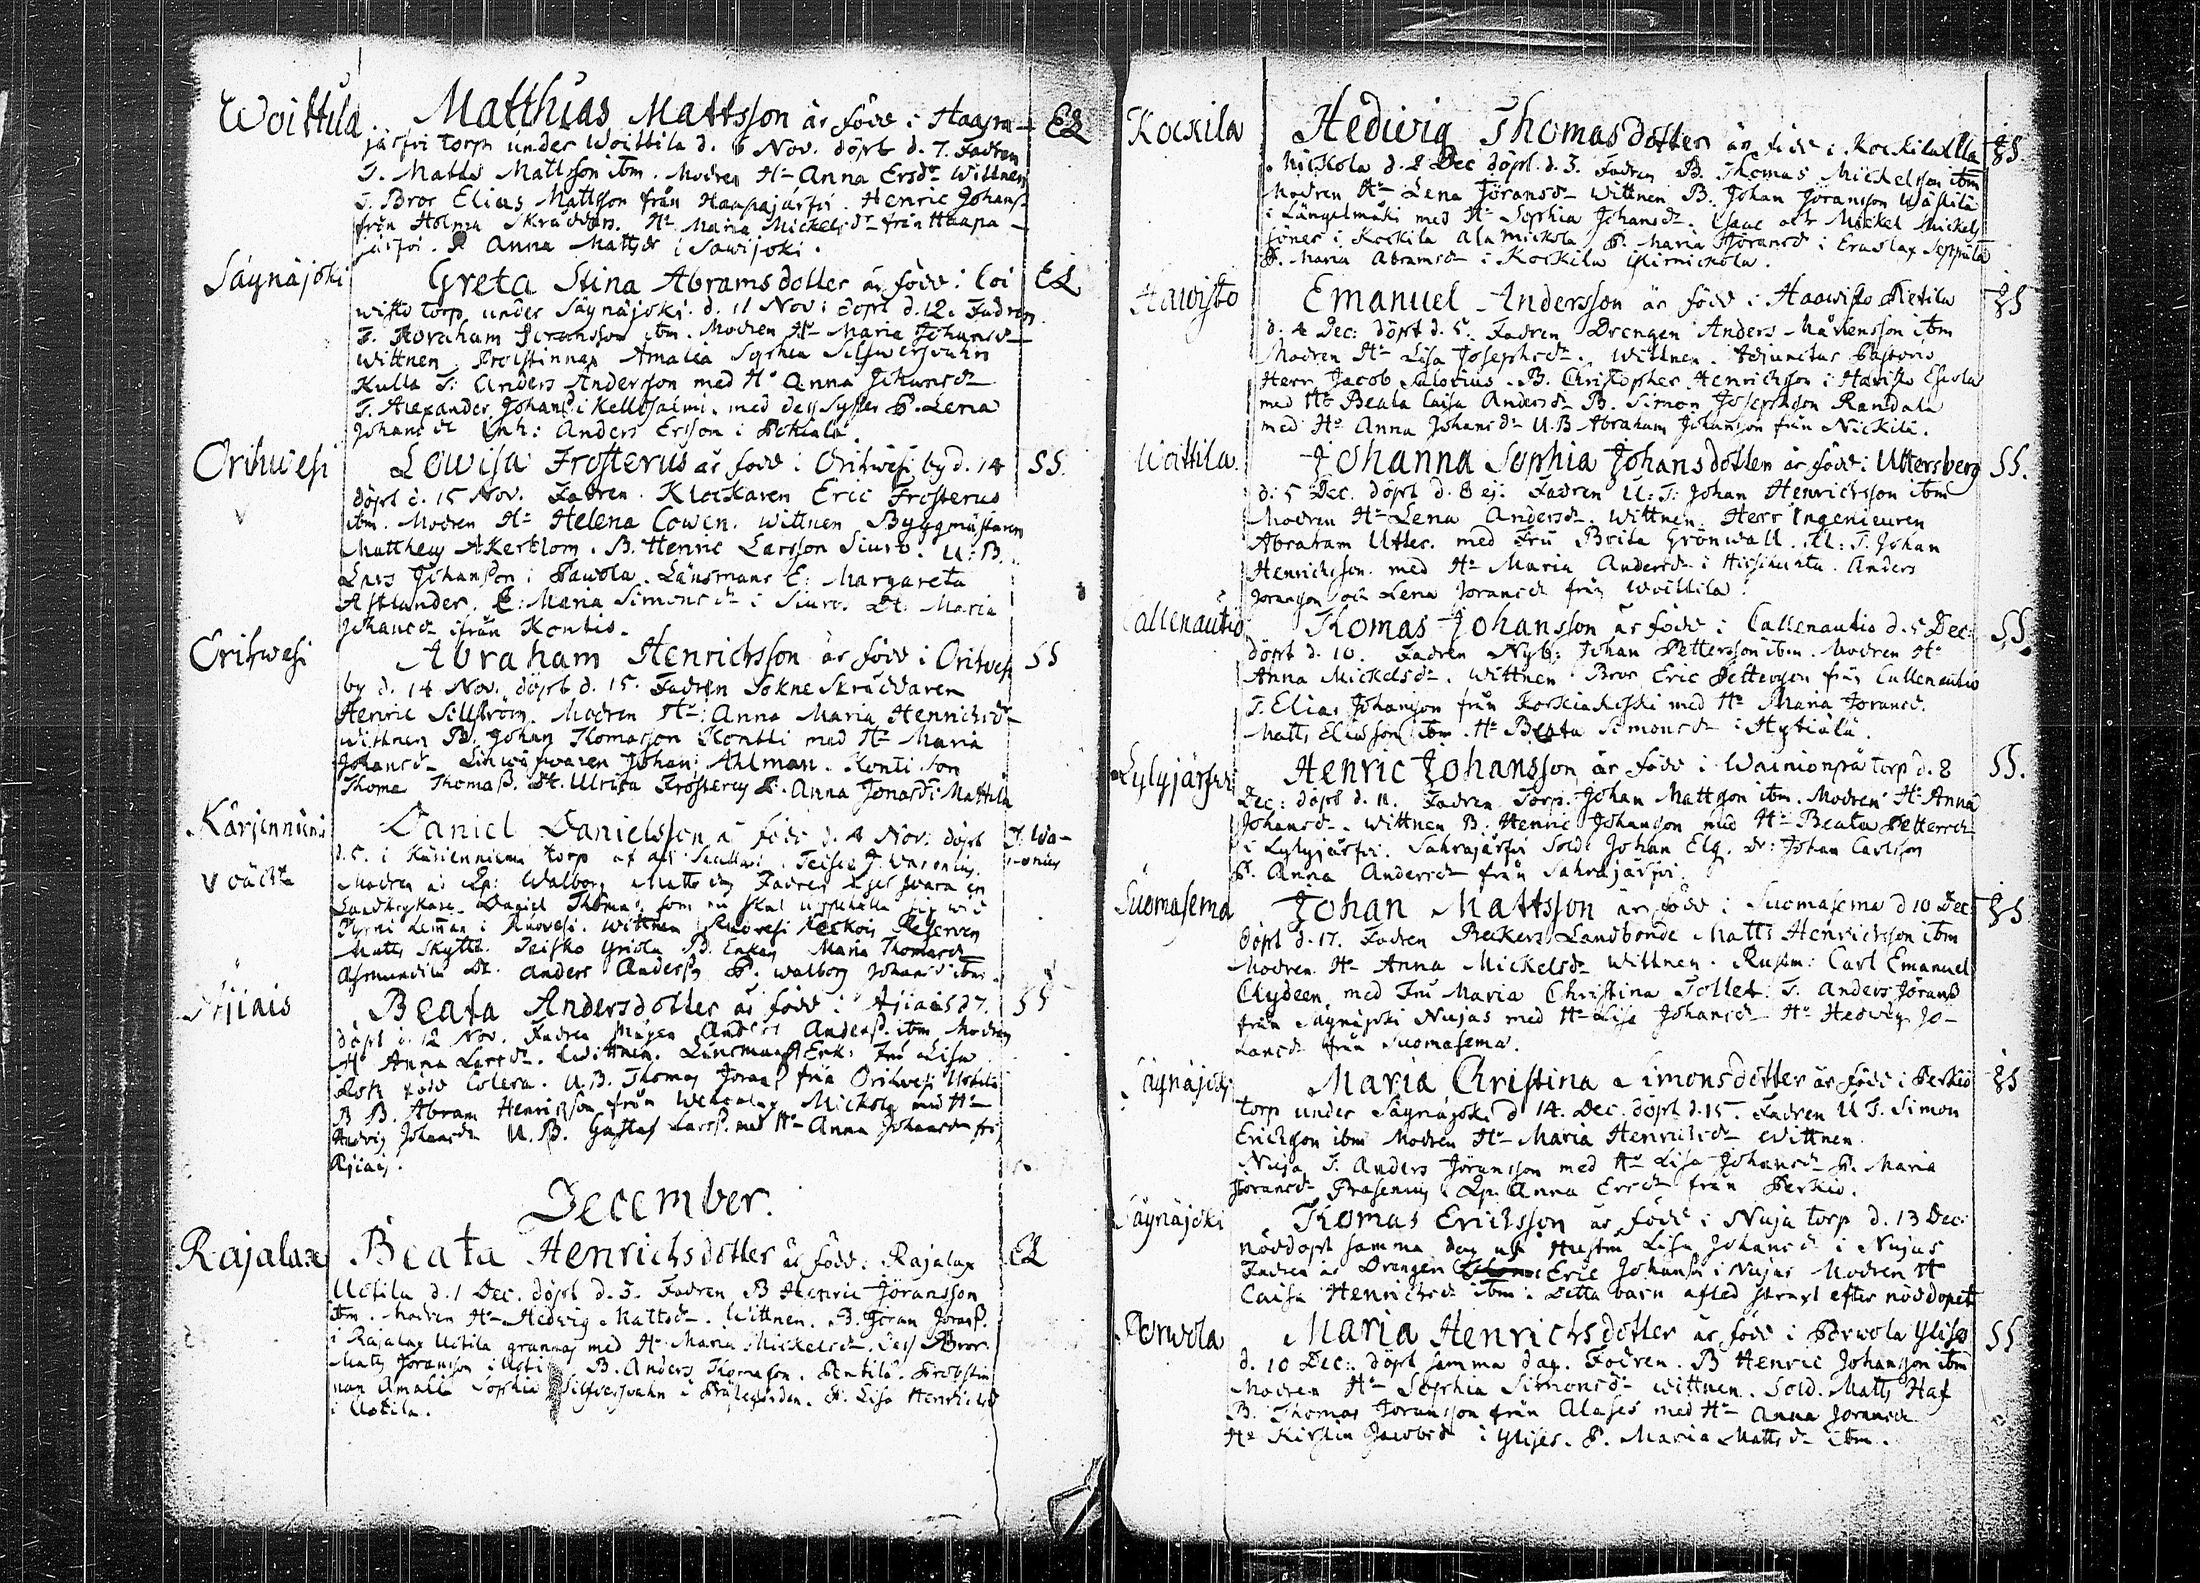 Woittila Matthias Mattsson är född i Haapa- EL
järfvi torp under Woittila d. 6 Nov. döpt d. 7. Fadren
T. Matts Mattsson ibm. Modren Hu Anna Ersdr Wittnen
T. Bror Elias Mattsson från Haapajärfvi. Henric Johanss
från Holma Skräddar. Hu Maria Mickelsdr från Haapa-
järfvi. P. Anna Mattsdr i Sawijoki.
Säynäjoki Greta Stina Abramsdotter är född i Coi EL
wisto torp under Säynäjoki d. 11 Nov: döpt d. 12. Fadren
T. Abraham Joransson ibm. Modren Hu Maria Johansdr
Wittnen Probstinnan Amalia Sophia Silfwersvahn
Kulla T: Anders Andersson med Hu Anna Johansdr
T. Alexander Johans i Kellosalmi. med dess Syster P. Lena
Johansdr Inh: Anders Ersson i Pohiala.
Orihwesi Lowisa Frosterus är född i Orihwesi by d. 14 SS.
döpt d. 15 Nov. Fadren Klockaren Eric Frosterus
ibm. Modren Hu Helena Cowen. Wittnen Byggmästaren
Matthew Åkerblom. B. Henric Larsson Siuro. U: B.
Lars Johansson i Pawola. Länsmans E: Margareta
Astlander. E: Maria Simonsdr i Siuro. Dt: Maria
Johansdr ifrån Kontis.
Orihwesi Abraham Henrichsson är född i Orihwesi SS
by d. 14 Nov. döpt d. 15. Fadren Sokne Skräddaren
Henric Sellström. Modren Hu: Anna Maria Henrichsdr
Wittnen B. Johan Thomasson Kontti med Hu Maria
Johansdr Linwäfwaren Johan Ahlman. Konti Son
Thomas Thomass. Dt. Ulrica Frosterus P. Anna Jonasdr i Mattila
Kärjenniemi Daniel Danielsson är född d. 4 Nov. döpt J. Wa-
d. 5. i Kärjenniemi torp af J. Waronius. ronius
Modren är Lp: Walborg Mattsdr Fadren
Landtryckare Daniel Thomas. som nu skal uppehålla sig wid
Pyrni i Ruovesi. Wittnen Ruovesi
Matts Skyttä. Teisko Maria Thomasdr
Asmundila Dt. Anders Anderss P. Walborg Johansdr ibm.
Äjiais Beata Andersdotter är född i Äjiais d 7. SS
döpt d. 12 Nov. Fadren Mågen Anders Anderss. ibm Modren
Hu Anna Larsdr. Wittnen. Länsman Erk: Fru Lisa
född Colera. U.B. Thomas Jorans från Orihwesi Uotila
B B. Abram Henricsson från Mickola med Hu
Hedvig Johansdr U. B. Gustaf Larss. med Hu Anna Johansdr frå
Äjiais.
December.
Rajalax Beata Henrichsdotter är född i Rajalax EL
Uotila d. 1 Dec. döpt d. 3. Fadren B Henric Jöransson
ibm. Modren Hu Hedvig Mattsdr. Wittnen. B. Jöran Jorass.
i Rajalax Uotila grannas med Hu Maria Mickelsdr. dess Bror
Matts Joransson i Uotila B. Anders Thomasson. Pentilä. Probstin
nan Amalia Sophia Silfversvahn i Prästgården. P. Lisa Henricsdr
i Uotila.
Kockila Hedwig Thomasdotter är född i Kockila Ala
Mickola d. 2 Dec döpt d. 3. Fadren B. Thomas Mickelsson ibm
Modren Hu Lena Jöransdr Wittnen B. Johan Jöransson Wästilä
i Längelmäki med Hu Sophia Johansdr. Isaac och Mickel Mickels
söner i Kockila Ala Mickola P. Maria Jöransdr i Eräslax Seppälä
P. Maria Abramsdr i Kockila Ylimickola.
Hawisto Emanuel Andersson är född i Haawisto Pietila
d. 4 Dec: döpt d. 5. Fadren Drengen Anders Mårtensson ibm
Modren Hu Lisa Josephsdr. Wittnen. Adjunctus Pastoris
Herr Jacob Salovius. B. Christopher Henrichsson i Hawisto Eskola
med Hu Beata Caisa Andersdr B. Simon Josephsson Randala
med Hu Anna Johansdr U.B Abraham Johansson från Nickilä.
Woittila Johanna Sophia Johansdotter är född i Uttersberg SS.
d. 5 Dec. döpt d. 8 ej. Fadren U: T: Johan Henrichsson ibm
Modren Hu Lena Andersdr. Wittnen. Herr Ingenieuren
Abraham Utter. med Fru Brita Grönwall. Kl: T. Johan
Henrichsson med Hu Maria Andersdr i Hirsikunta. Anders
Joransson och Lena Joransdr från Woittila.
Callenautio Thomas Johansson är född i Callenautio d. 5 Dec: SS.
döpt d. 10. Fadren Nyb: Johan Pettersson ibm. Modren Hu
Anna Mickelsdr. Wittnen Bror Eric Pettersson från Callenautio
T. Elias Johansson från Korkiakoski med Hu Maria Joransdr.
Matts Eliasson ibm. Hu Beata Simonsdr i Hytiälä.
Lylyjärfvi Henric Johansson är född i Wainionpää torp d. 8 SS.
Dec: döpt d. 11. Fadren Torp. Johan Mattsson ibm. Modren Hu Anna
Johansdr. Wittnen B. Henric Johansson med Hu Beata Pettersdr
i Lylyjärfvi. Sahrajärfvi Sold: Johan Elg. Dr: Johan Carlsson
P. Anna Andersdr från Sahrajärfvi.
Suomasema Johan Mattsson är född i Suomasema d 10 Dec
döpt d. 17. Fadren Beckers Landbonde Matts Henrichsson ibm
Modren Hu Anna Mickelsdr Wittnen. Rustm: Carl Emanuel
Clydeen med Fru Maria Christina Tollet. T. Anders Jöranss
från Säynäjoki Nujas med Hu Lisa Johansdr Hu Hedvig Jo-
hansdr från Suomasema.
Säynäjoki Maria Christina Simonsdotter är född i Perkiö
torp under Säynäjoki d 14. Dec. döpt d. 15. Fadren U T. Simon
Ericsson ibm Modren Hu Maria Henrichsdr Wittnen.
Nuja T. Anders Jöransson med Hu Lisa Johansdr P. Maria
Joransdr Prasenius. Lp. Anna Ersdr från Perkiö.
Säynäjoki Thomas Ericksson är född i Nuja torp d. 13 Dec:
nöddöpt samma dag af Hustru Lisa Johansdr i Nujas
Fadren är Drengen Eric Johanss i Nujas Modren Hu
Caisa Henrichsdr ibm. Detta barn afled straxt efter nöddopet
Porwola Maria Henrichsdotter är född i Porwola Ylises SS
d. 10 Dec: döpt samma dag. Fadren. B Henric Johansson ibm
Modren Hu Sophia Simonsdr Wittnen. Sold. Matts Haf
B. Thomas Joransson från Alases med Hu Anna Joransdr
Hu Kirstin Jacobsdr i Ylises. P. Maria Mattsdr ibm.